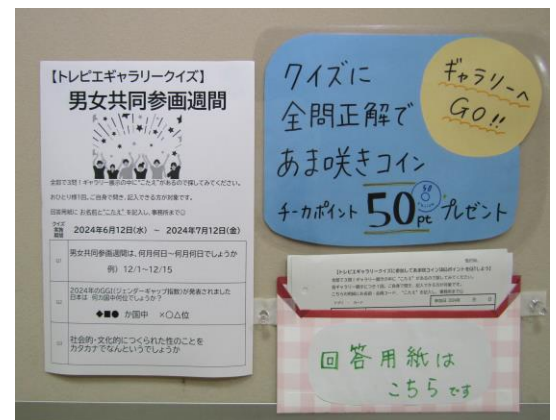 【トレピエギャラリークイズ】
男女共同参画週間
全部で3問！ギャラリー展示の中に"こたえ"があるので探してみてください。
おひとり様1回、ご自身で聞き、記入できる方が対象です。
回答用紙に お名前と"こたえ"を記入し、事務所まで☺
クイズ
実施
期間
2024年6月12日(水) ～ 2024年7月12日(金)
Q1
男女共同参画週間は、何月何日～何月何日でしょうか
例）12/1～12/15
Q2
2024年のGGI(ジェンダーギャップ指数)が発表されました
日本は 何カ国中何位でしょうか？
◆■● か国中 ×〇△位
Q3
社会的・文化的につくられた性のことを
カタカナでなんというでしょうか
クイズに
全問正解で
あま咲きコイン
チーカポイント 50pt プレゼント
ギャラリーへ
GO!!
【トレピエギャラリークイズに参加してあま咲コイン(50ポイント)をGETしよう】
回答用紙は
こちらです